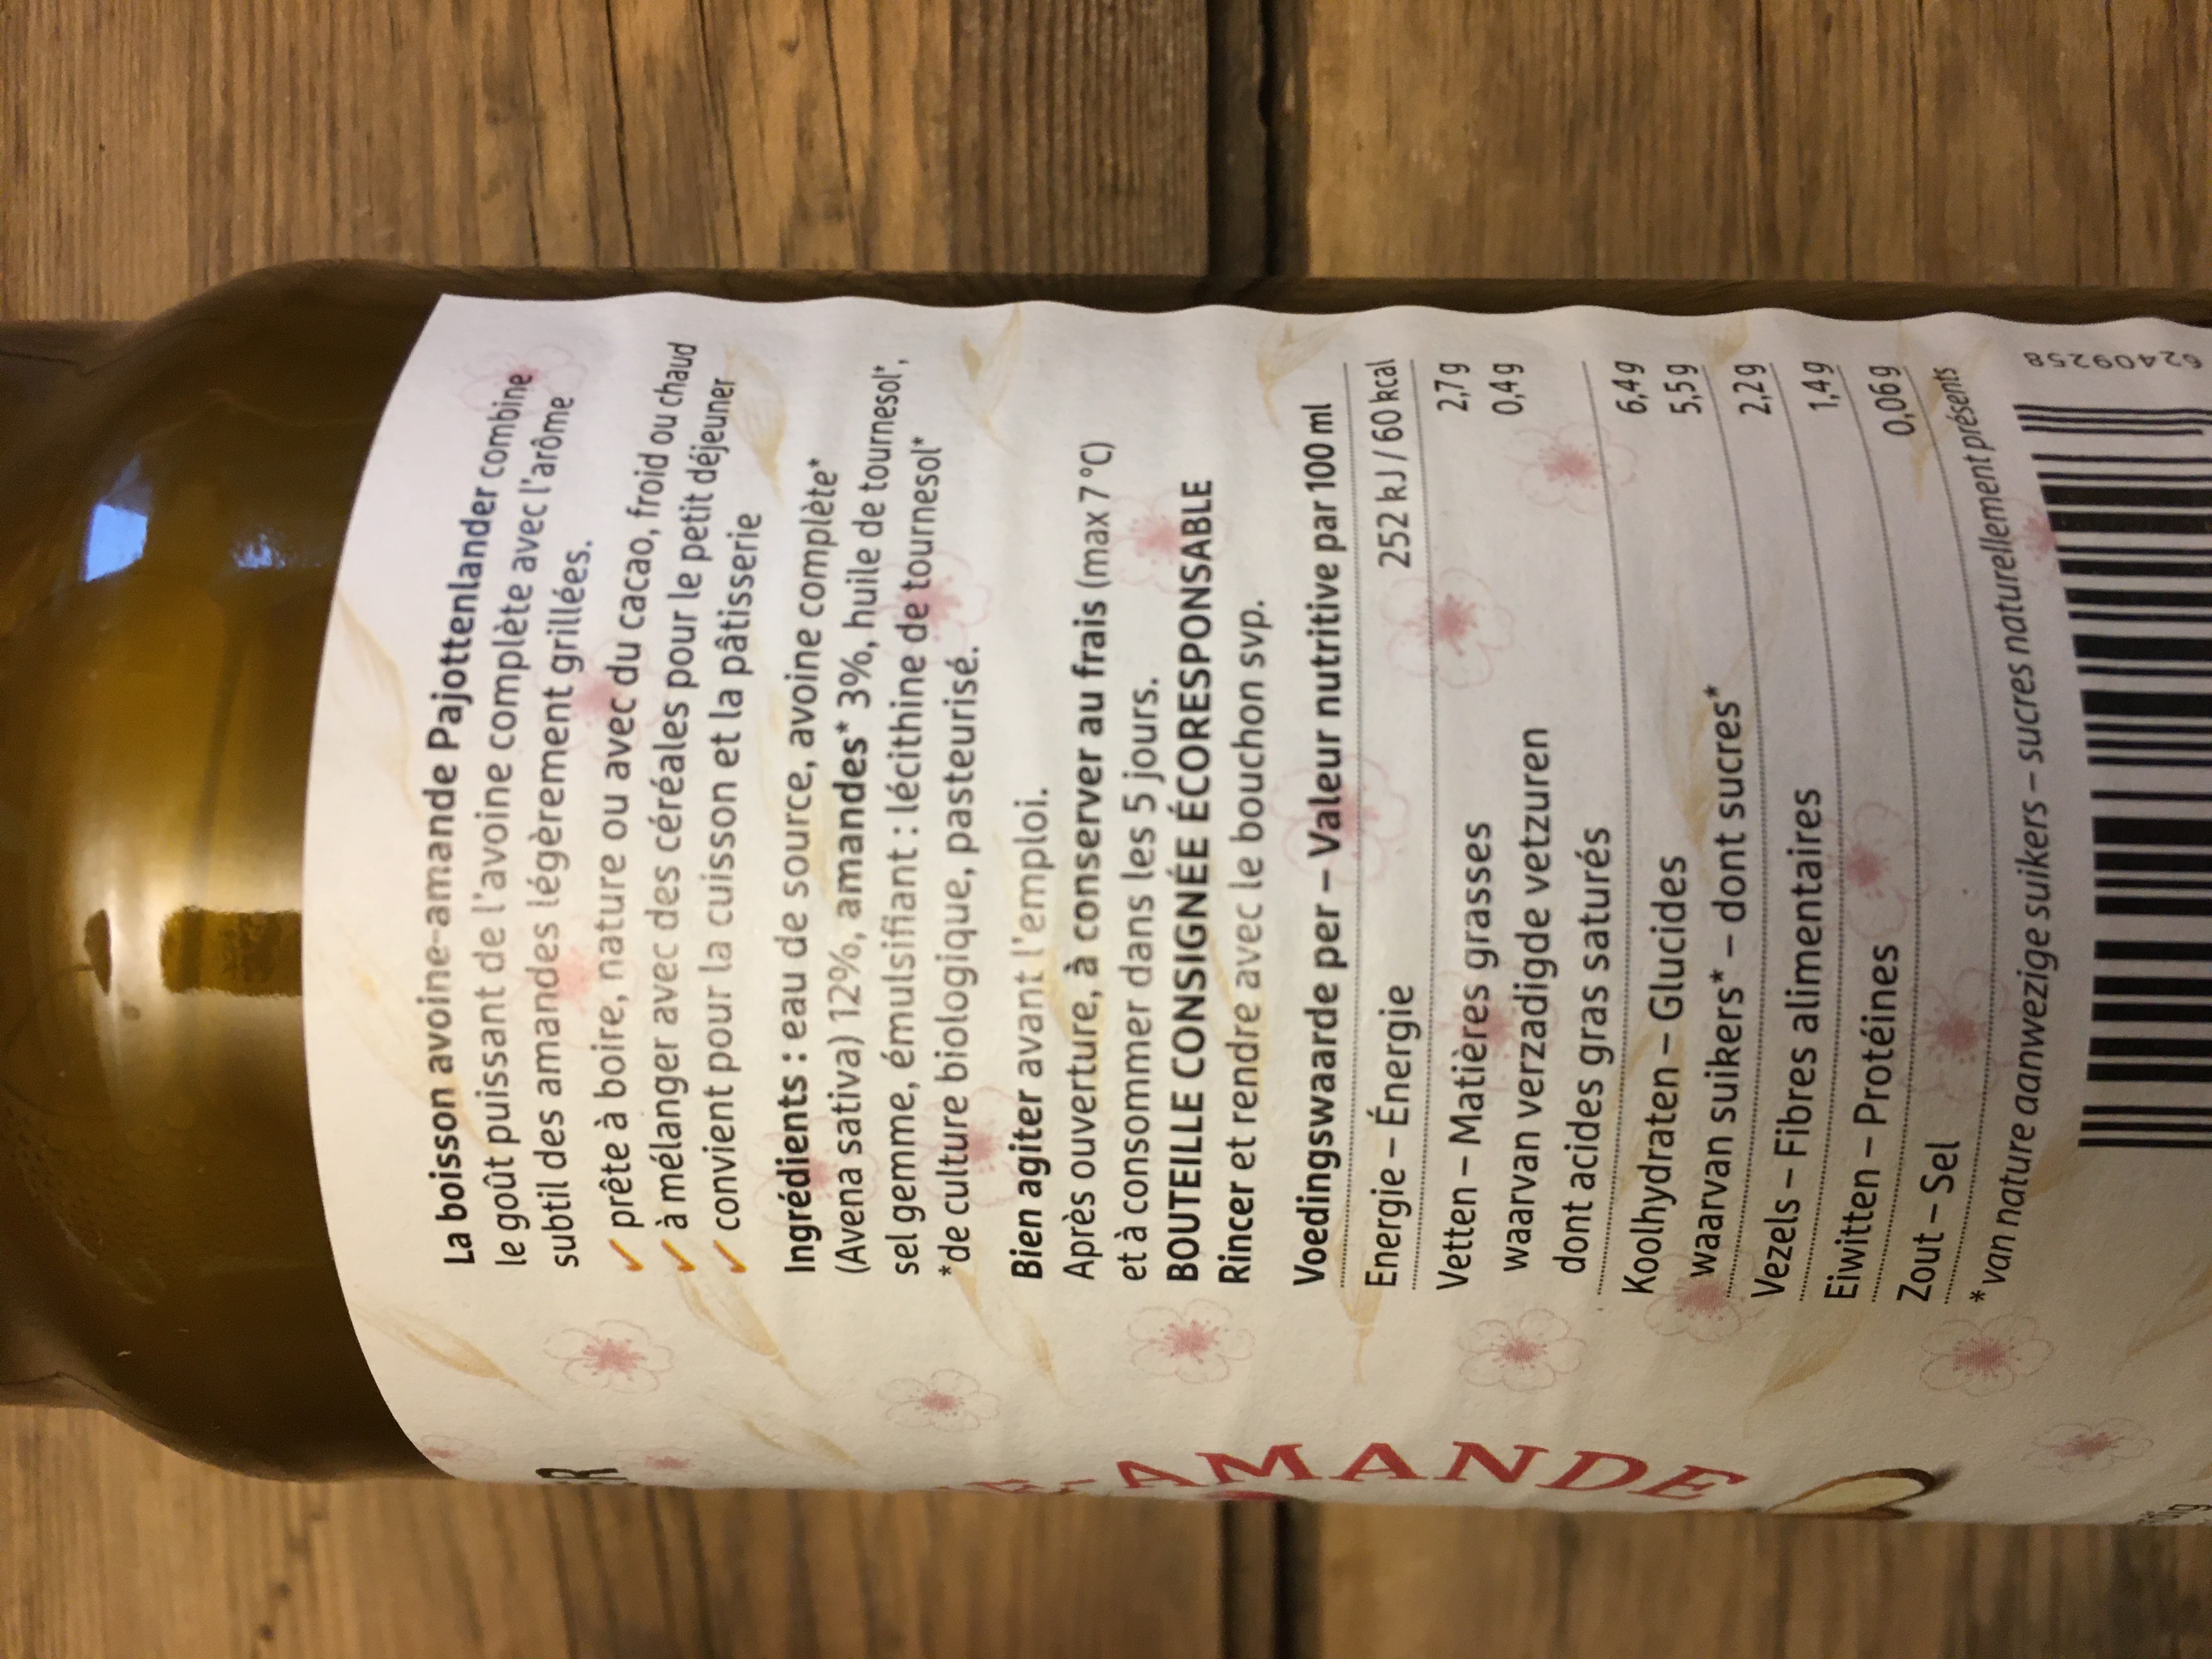 La boisson avoine-amande Pajottenlander combine
le goût puissant de l'avoine complète avec l'arôme
subtil des amandes légèrement grillées.
✓ prête à boire, nature ou avec du cacao, froid ou chaud
✓ à mélanger avec des céréales pour le petit déjeuner
✓ convient pour la cuisson et la pâtisserie
Ingrédients : eau de source, avoine complète*
(Avena sativa) 12%, amandes* 3%, huile de tournesol*,
sel gemme, émulsifiant : lécithine de tournesol*
*de culture biologique, pasteurisé.
Bien agiter avant l'emploi.
Après ouverture, à conserver au frais (max 7 °C)
et à consommer dans les 5 jours.
BOUTEILLE CONSIGNÉE ÉCORESPONSABLE
Rincer et rendre avec le bouchon svp.
Voedingswaarde per – Valeur nutritive par 100 ml
Energie – Énergie 252 kJ / 60 kcal
Vetten – Matières grasses 2,7g
waarvan verzadigde vetzuren 0,4g
dont acides gras saturés
Koolhydraten – Glucides 6,4g
waarvan suikers* – dont sucres* 5,5g
Vezels – Fibres alimentaires 2,2g
Eiwitten – Protéines 1,4g
Zout – Sel 0,06g
* van nature aanwezige suikers – sucres naturellement présents
62409258
-AMANDE